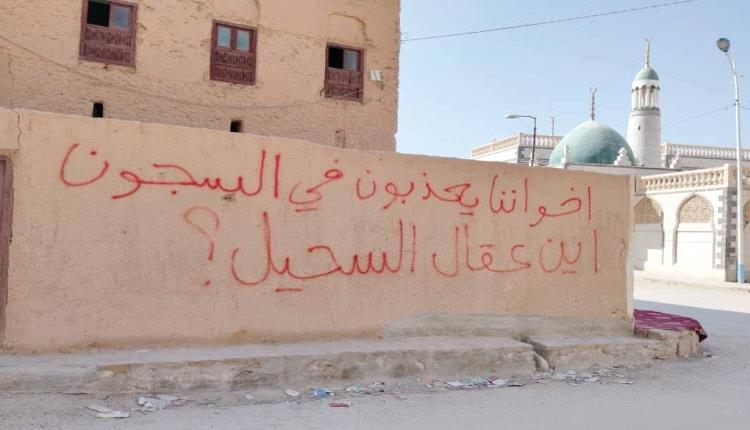 اخواننا يعذبون في السجون
اين عقال السحيل؟